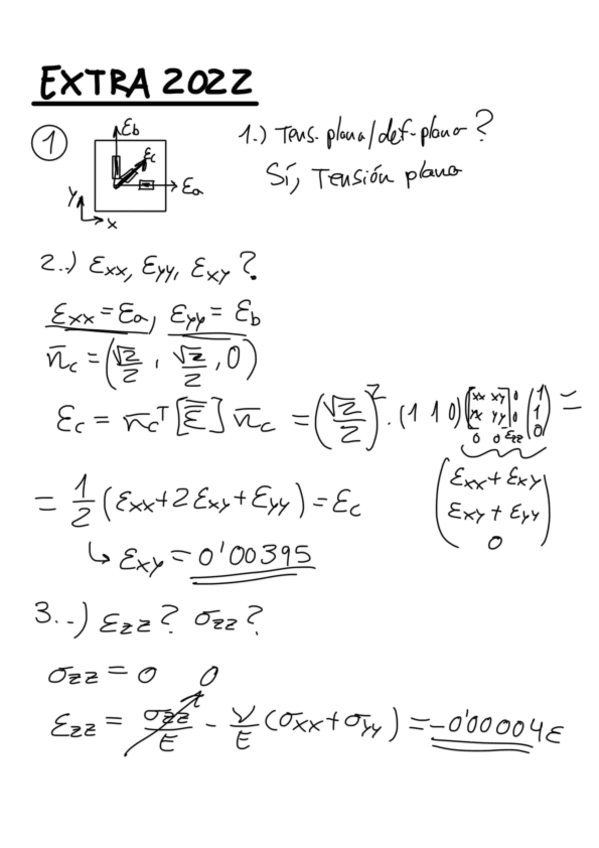 EXTRA 2022
1
εb
εc
εa
y
x
1.) Tens. plana/def-plana?
Sí, Tensión plana
2..) εxx, εyy, εxy?
εxx = εa, εyy = εb
n̄c = (√2/2, √2/2, 0)
εc = n̄cᵀ [ε̿] n̄c = (√2/2)² · (1 1 0) [xx xy 0 / yx yy 0 / 0 0 εzz] (1 1 0) =
(εxx + εxy
εxy + εyy
0)
= 1/2 (εxx + 2εxy + εyy) = εc
↳ εxy = 0'00395
3..-) εzz? σzz?
σzz = 0
εzz = σzz/E → 0 - ν/E (σxx + σyy) = -0'00004ε